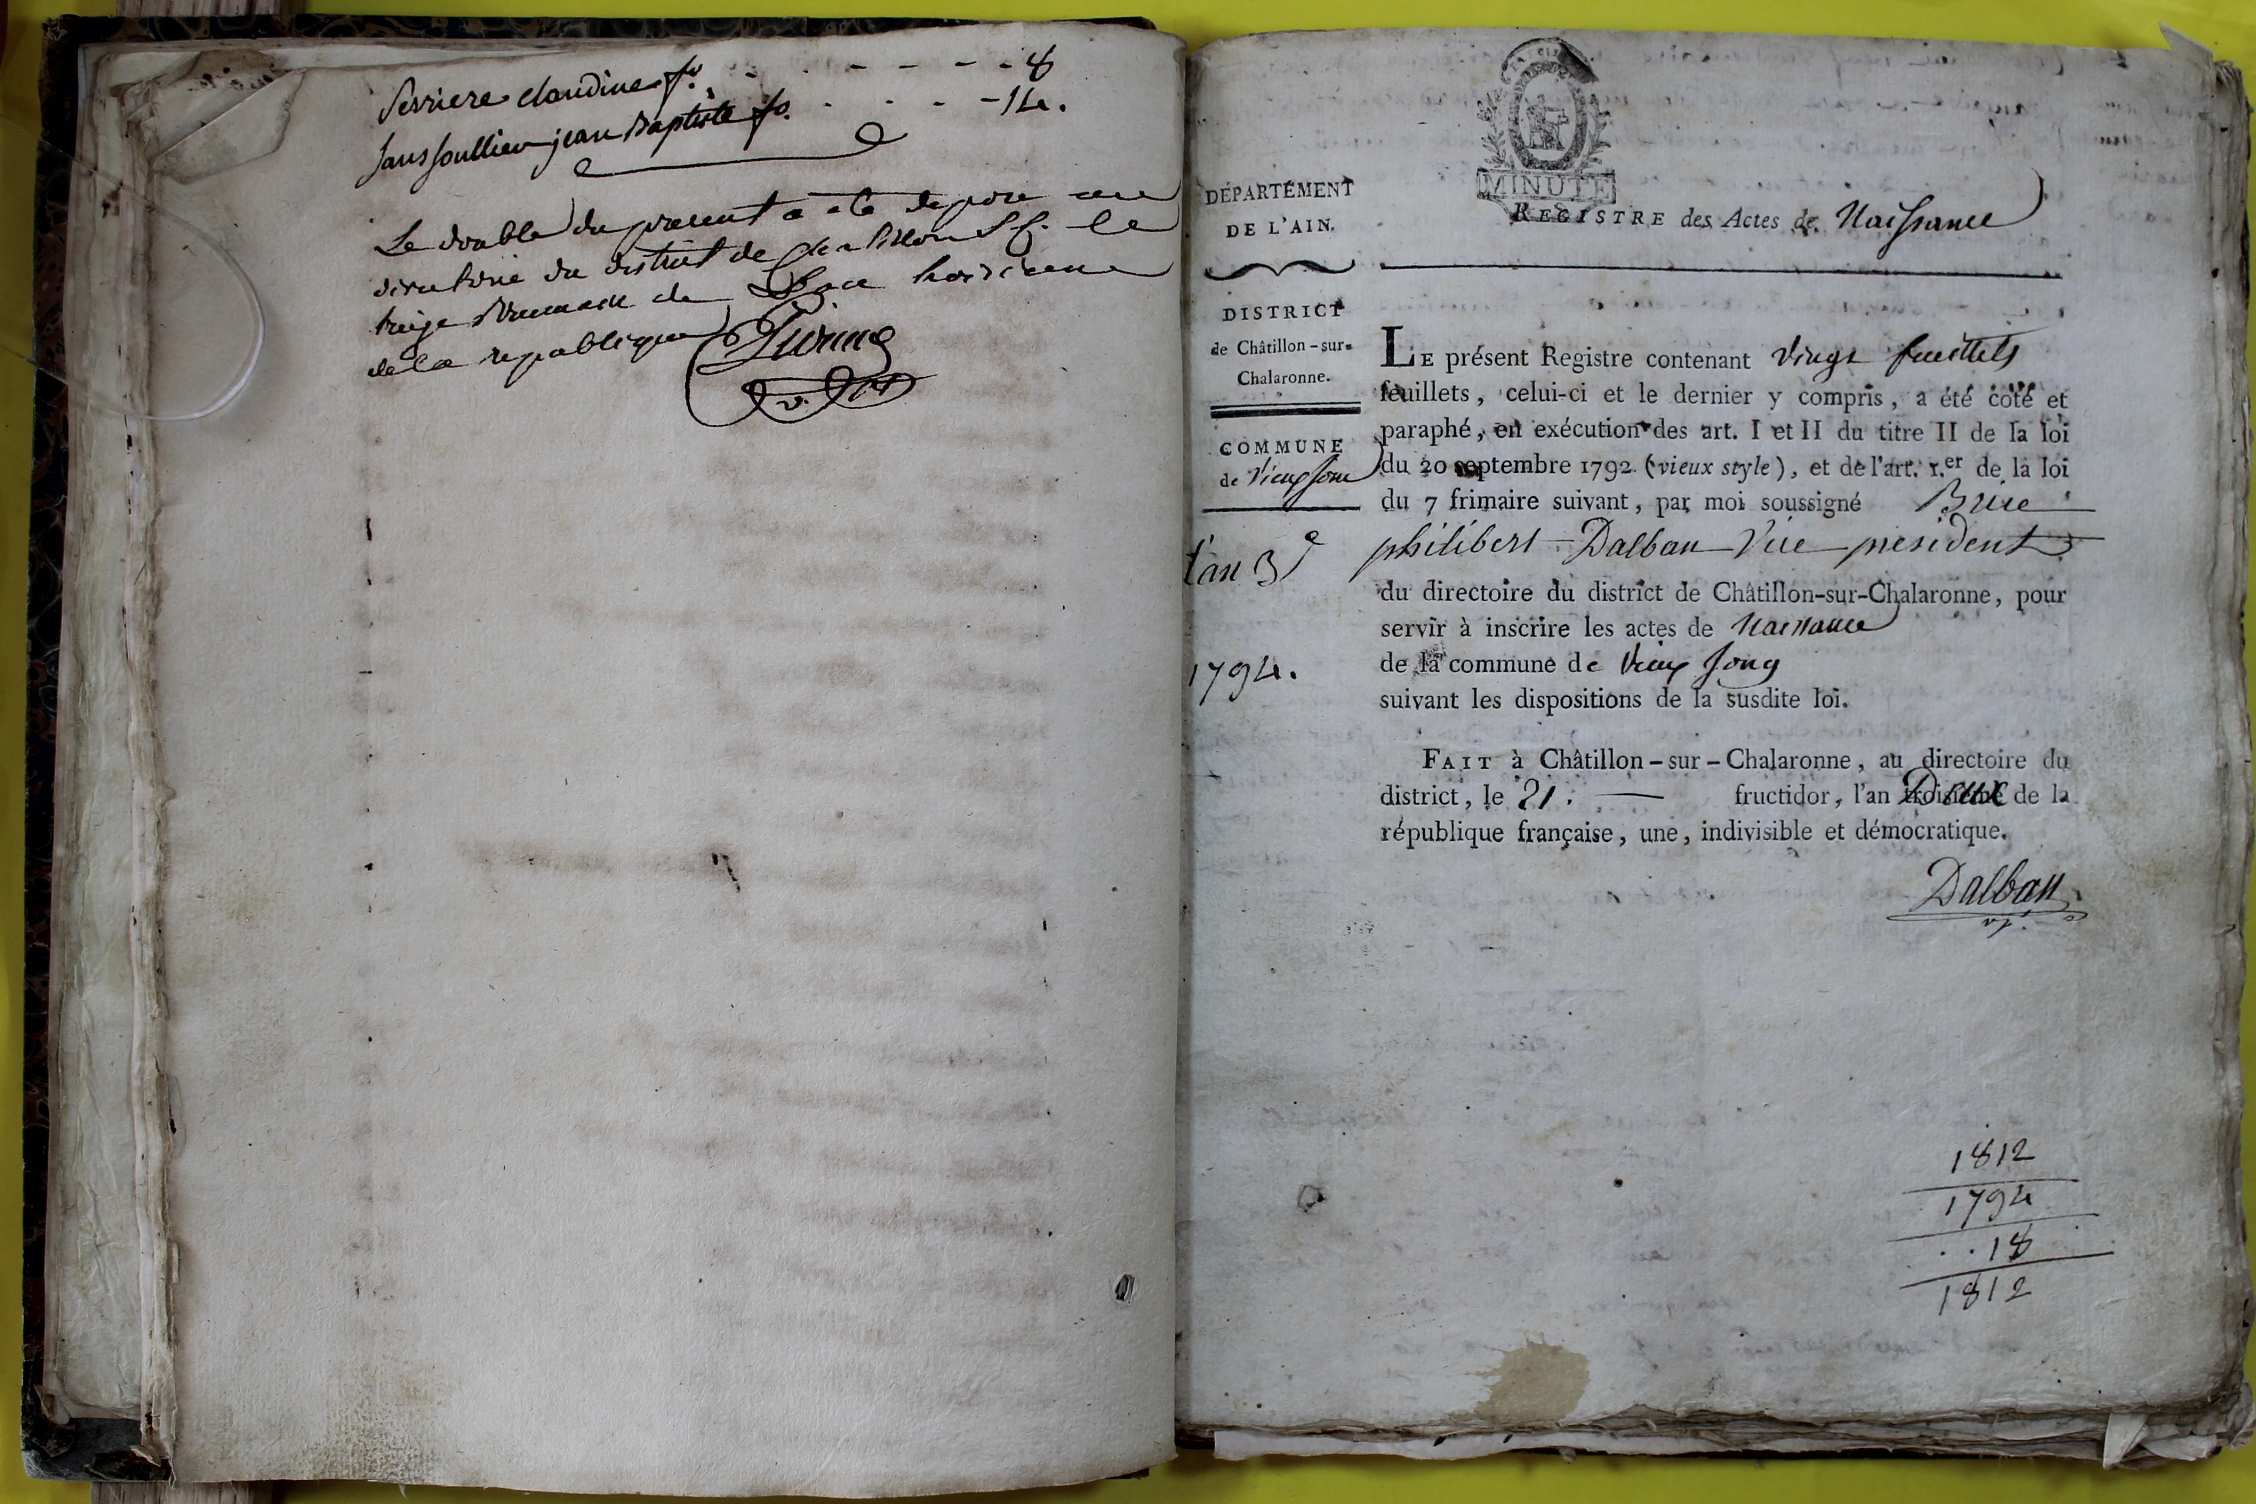 Serriere claudine fo. - - - - - - 8
Sanssoullieu jean Baptiste fo. - - - 14.
Le double du present a été deposé au
directoire du district de Chatillon S C. le
treize Brumaire de L'an troisieme
de la republique
MINUTE
DÉPARTEMENT
DE L'AIN.
REGISTRE des Actes de Naissance
DISTRICT
de Châtillon-sur-
Chalaronne.
COMMUNE
de Vieux Jonc
l'an 3e
1794.
LE présent Registre contenant vingt feuillets
feuillets, celui-ci et le dernier y compris, a été coté et
paraphé, en exécution des art. I et II du titre II de la loi
du 20 septembre 1792 (vieux style), et de l'art. 1.er de la loi
du 7 frimaire suivant, par moi soussigné Brice
philibert Dalban Vice president
du directoire du district de Châtillon-sur-Chalaronne, pour
servir à inscrire les actes de Naissance
de la commune de Vieux Jong
suivant les dispositions de la susdite loi.
FAIT à Châtillon-sur-Chalaronne, au directoire du
district, le 21. fructidor, l'an Deux de la
république française, une, indivisible et démocratique.
Dalban
vp.
1812
1794
..18
1812